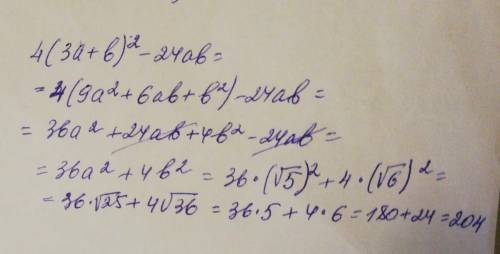 4(3a+b)²-24ab=
=4(9a²+6ab+b²)-24ab=
=36a²+24ab+4b²-24ab=
=36a²+4b²=36·(√5)²+4·(√6)²=
=36·√25+4√36=36·5+4·6=180+24=204